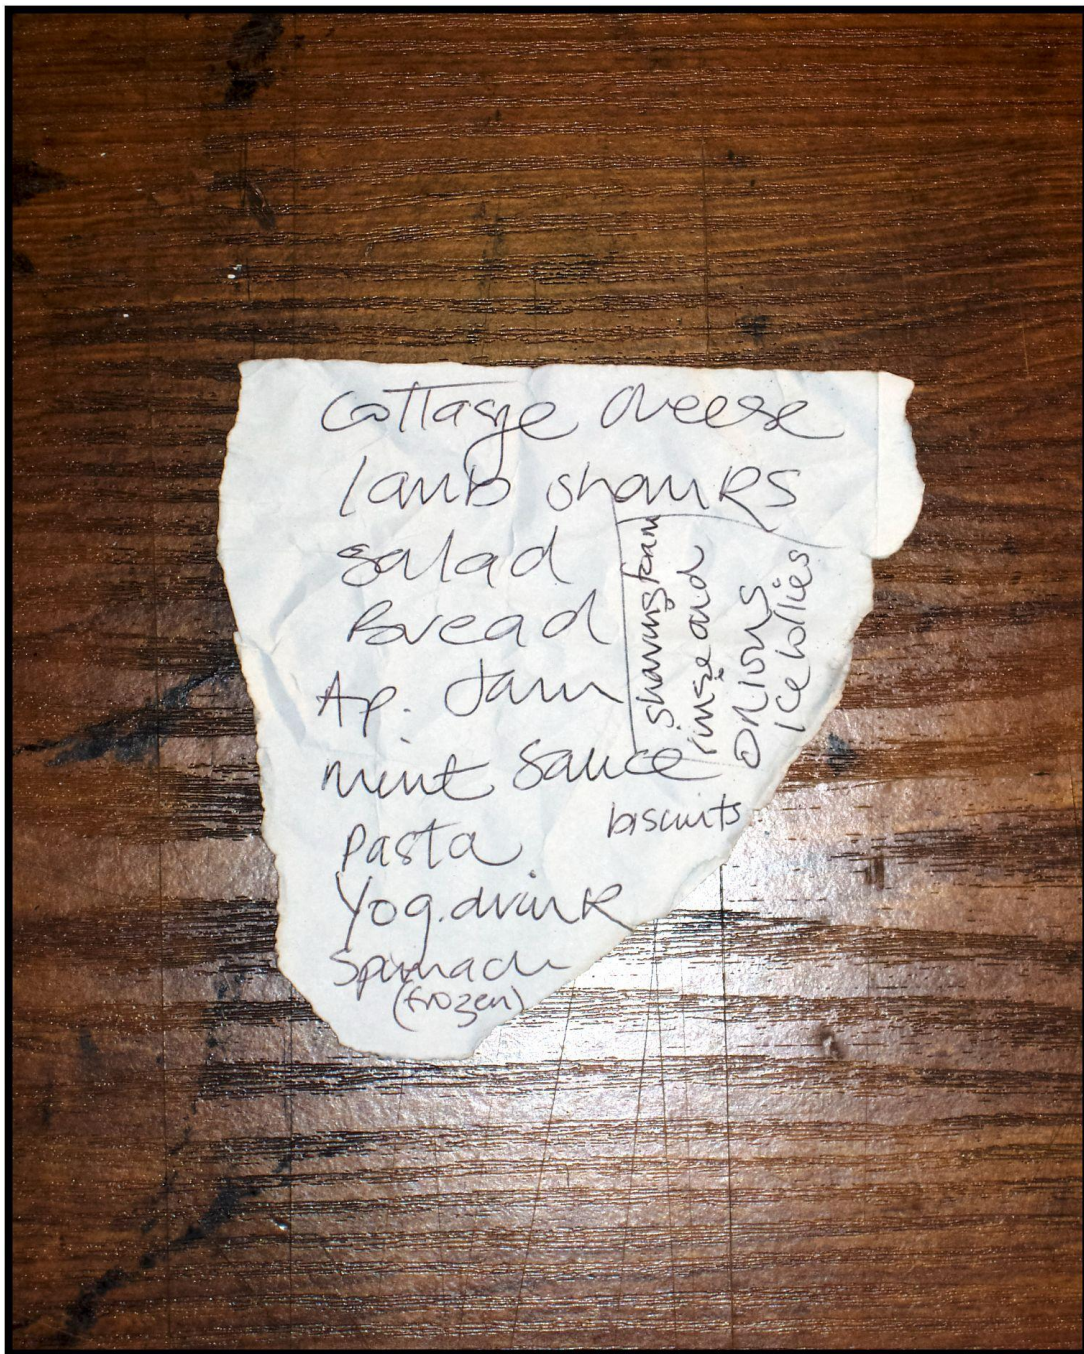 Cottage cheese
lamb shanks
salad
Bread
Ap. Jam
mint sauce
biscuits
pasta
Yog. drink
spinach
(frozen)
shaving foam
rinse and
onions
ice lollies